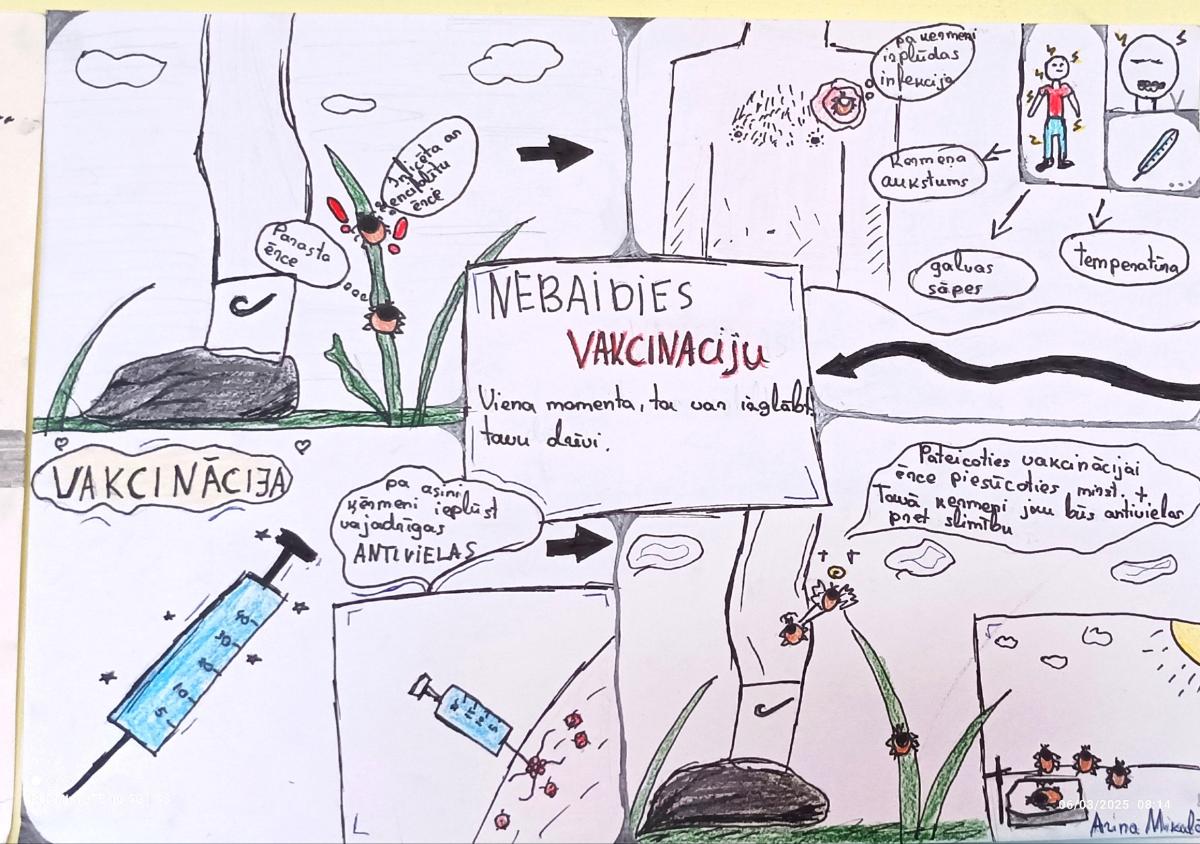 Inficēta ar
encifalītu
ērce
Parasta
ērce
pa ķermeni
izplūdas
infekcija
Ķermeņa
aukstums
galvas
sāpes
temperatūra
NEBAIDIES
VAKCINACIJU
Viena momenta, ta var izglābt
tavu dzīvi.
VAKCINĀCIJA
pa asini
ķērmeni ieplūst
vajadzīgas
ANTIVIELAS
Pateicoties vakcinācijai
ērce piesūcoties mirst, +
Tavā ķermeņi jau būs antivielas
pret slimību
06/03/2025 08:14
Arina